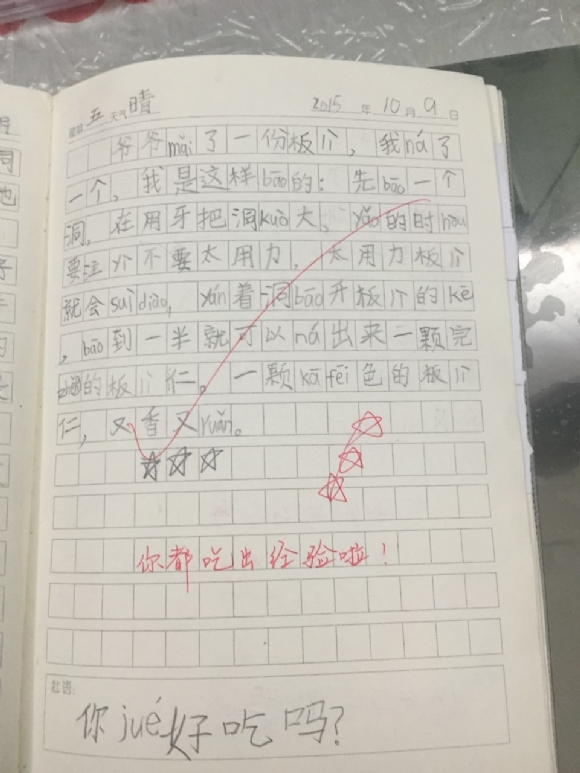 星期 五 天气 晴 2015 年 10 月 9 日
爷爷mǎi了一份板介,我ná了
一个,我是这样bāo的:先bāo一个
洞,在用牙把洞kuò大、yǎo的时hou
要注介不要太用力,太用力板介
就会suìdiào,yán着洞bāo开板介的ké
,bāo到一半就可以ná出来一颗完
的板介仁。一颗kā fēi色的板介
仁,又香又ruǎn。
☆☆☆
你都吃出经验啦!
赶语:
你jué好吃吗?